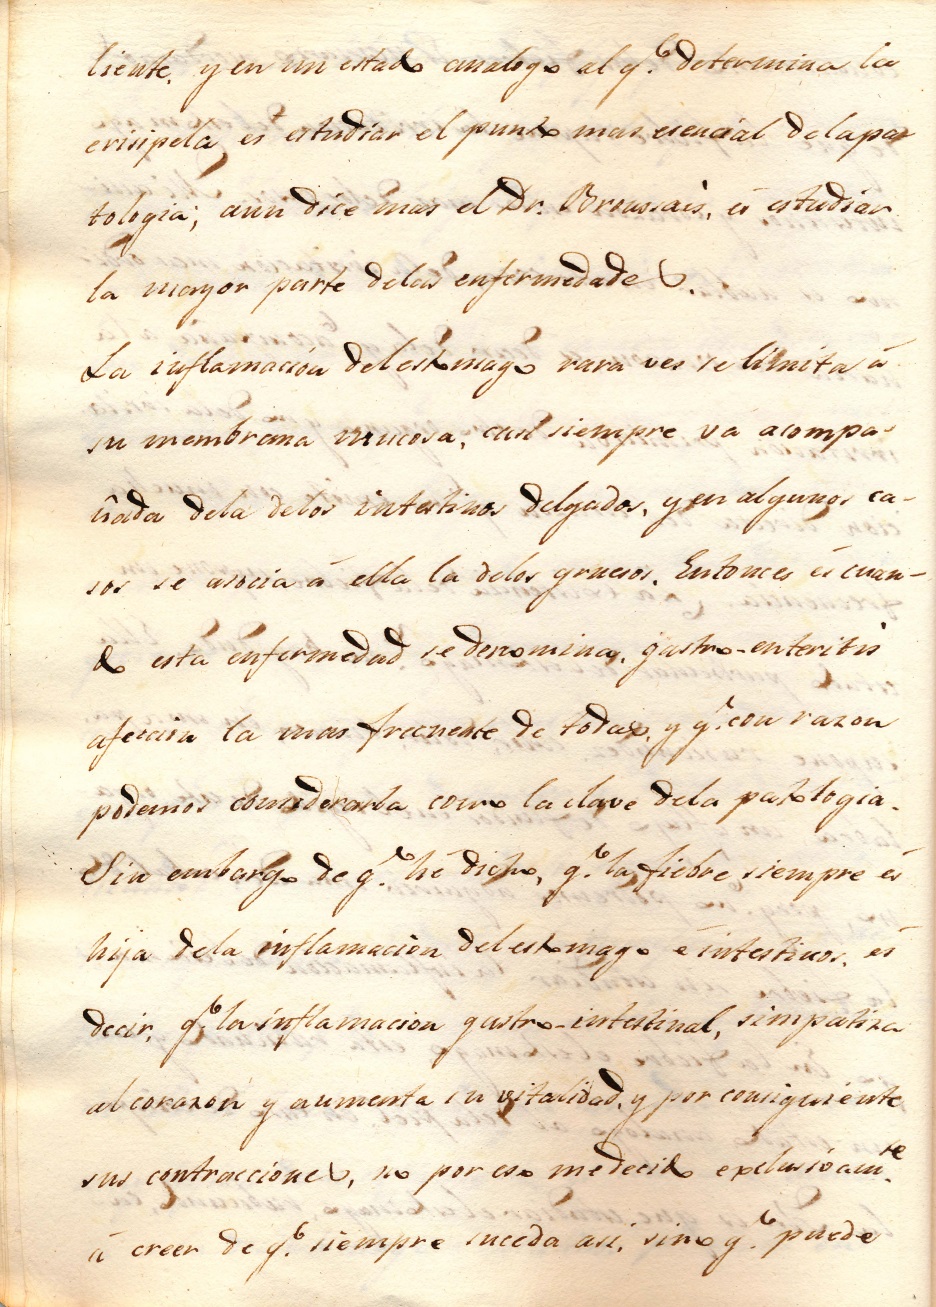 liente, y en un estado analogo al q.e determina la
erisipela es estudiar el punto mas esencial de la pa
tologia; aun dice mas el Dr. Broussais, es estudiar
la mayor parte delas enfermedades.
La inflamacion del estomago rara ves se limita á
su membrana mucosa, casi siempre va acompa-
ñada dela delos intestinos delgados, y en algunos ca-
sos se asocia á ella la delos gruesos. Entonces és cuan-
do esta enfermedad se denomina, gastro-enteritis
afeccion la mas frecuente de todas, y q.e con razon
podemos considerarla como la clave dela patologia.
Sin embargo de q.e hé dicho, q.e la fiebre siempre és
hija dela inflamacion del estomago é intestinos, és
decir, q.e la inflamacion gastro-intestinal, simpatiza
al corazon y aumenta su vitalidad, y por consiguiente
sus contracciones, no por eso me decido exclusivam.te
á creer de q.e siempre suceda asi, sino q.e puede